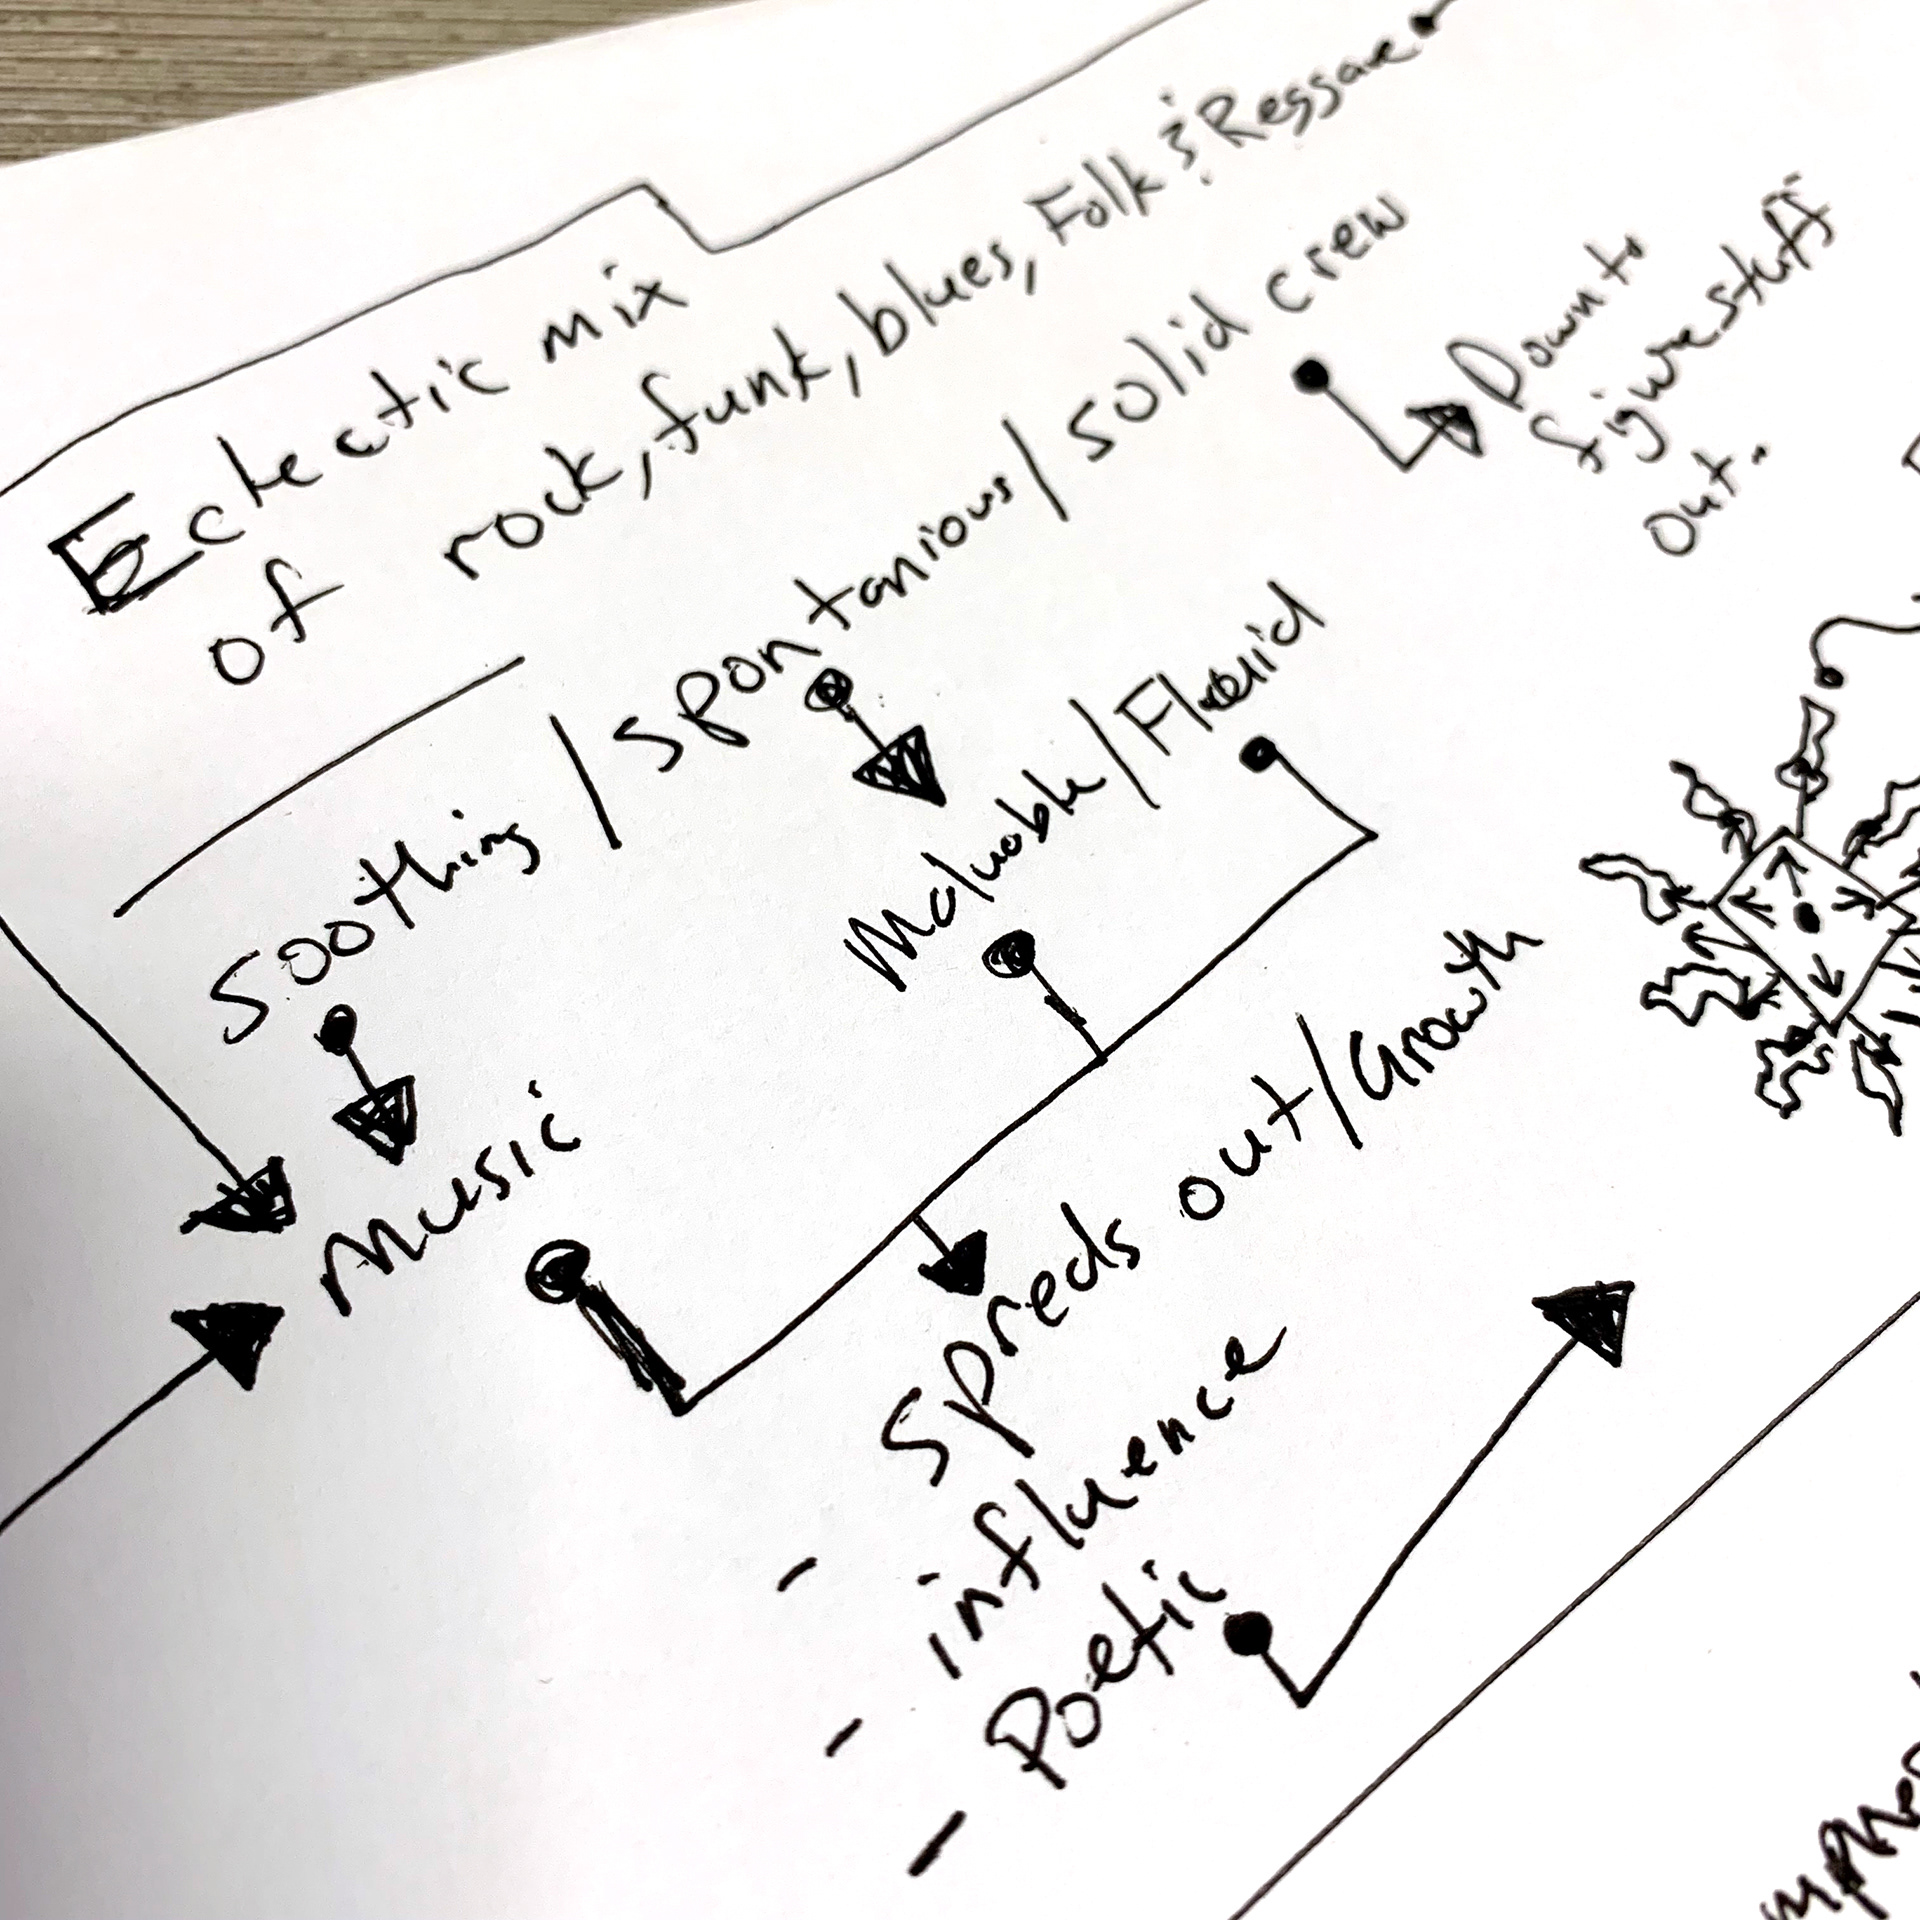 Eclectic mix
of rock, funk, blues, Folk & Reggae
Soothing / spontanious / solid crew
Down to
figure stuff
out.
Maluable / Fluid
Music
Spreds out / Growth
- influence
- Poetic
-